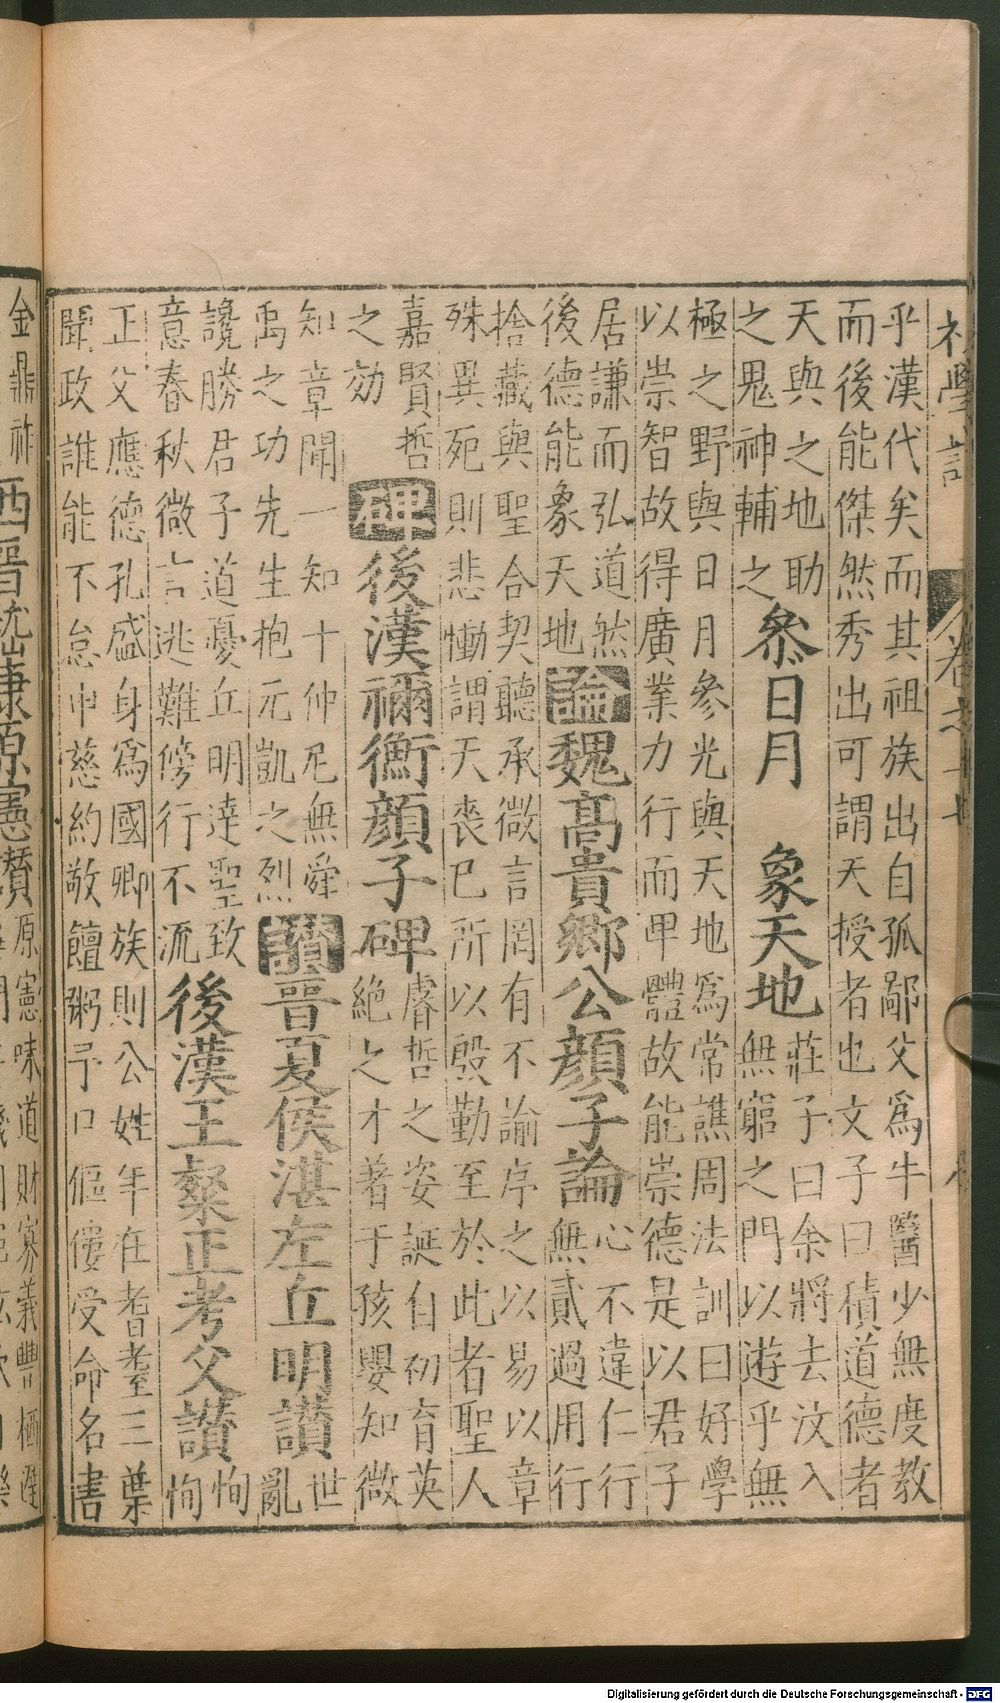 初學記 卷之十七
乎漢代矣而其祖族出自孤鄙父爲牛醫少無度教
而後能傑然秀出可謂天授者也文子曰積道德者
天與之地助
之鬼神輔之
叅日月 象天地
莊子曰余將去汝入
無窮之門以遊乎無
極之野與日月參光與天地爲常譙周法訓曰好學
以崇智故得廣業力行而卑體故能崇德是以君子
居謙而弘道然
後德能象天地
論魏髙貴鄉公顔子論
心不違仁行
無貳過用行
捨藏與聖合契聽承微言罔有不諭序之以易以章
殊異死則悲慟謂天喪已所以殷勤至於此者聖人
嘉賢哲
之効
碑後漢禰衡顔子碑
睿哲之姿誕自初育英
絶之才著于孩嬰知微
知章聞一知十仲尼無舜
禹之功先生抱元凱之烈
讃晉夏侯湛左丘明讃
世
亂
讒勝君子道憂丘明達聖致
意春秋微言逃難傍行不流
後漢王粲正考父讃
恂
恂
正父應德孔盛身爲國卿族則公姓年在耆耋三葉
聞政誰能不怠申慈約敬饘粥予口傴僂受命名書
金鼎祚
西晉嵇康原憲贊
原憲味道財寡義豐栖遲